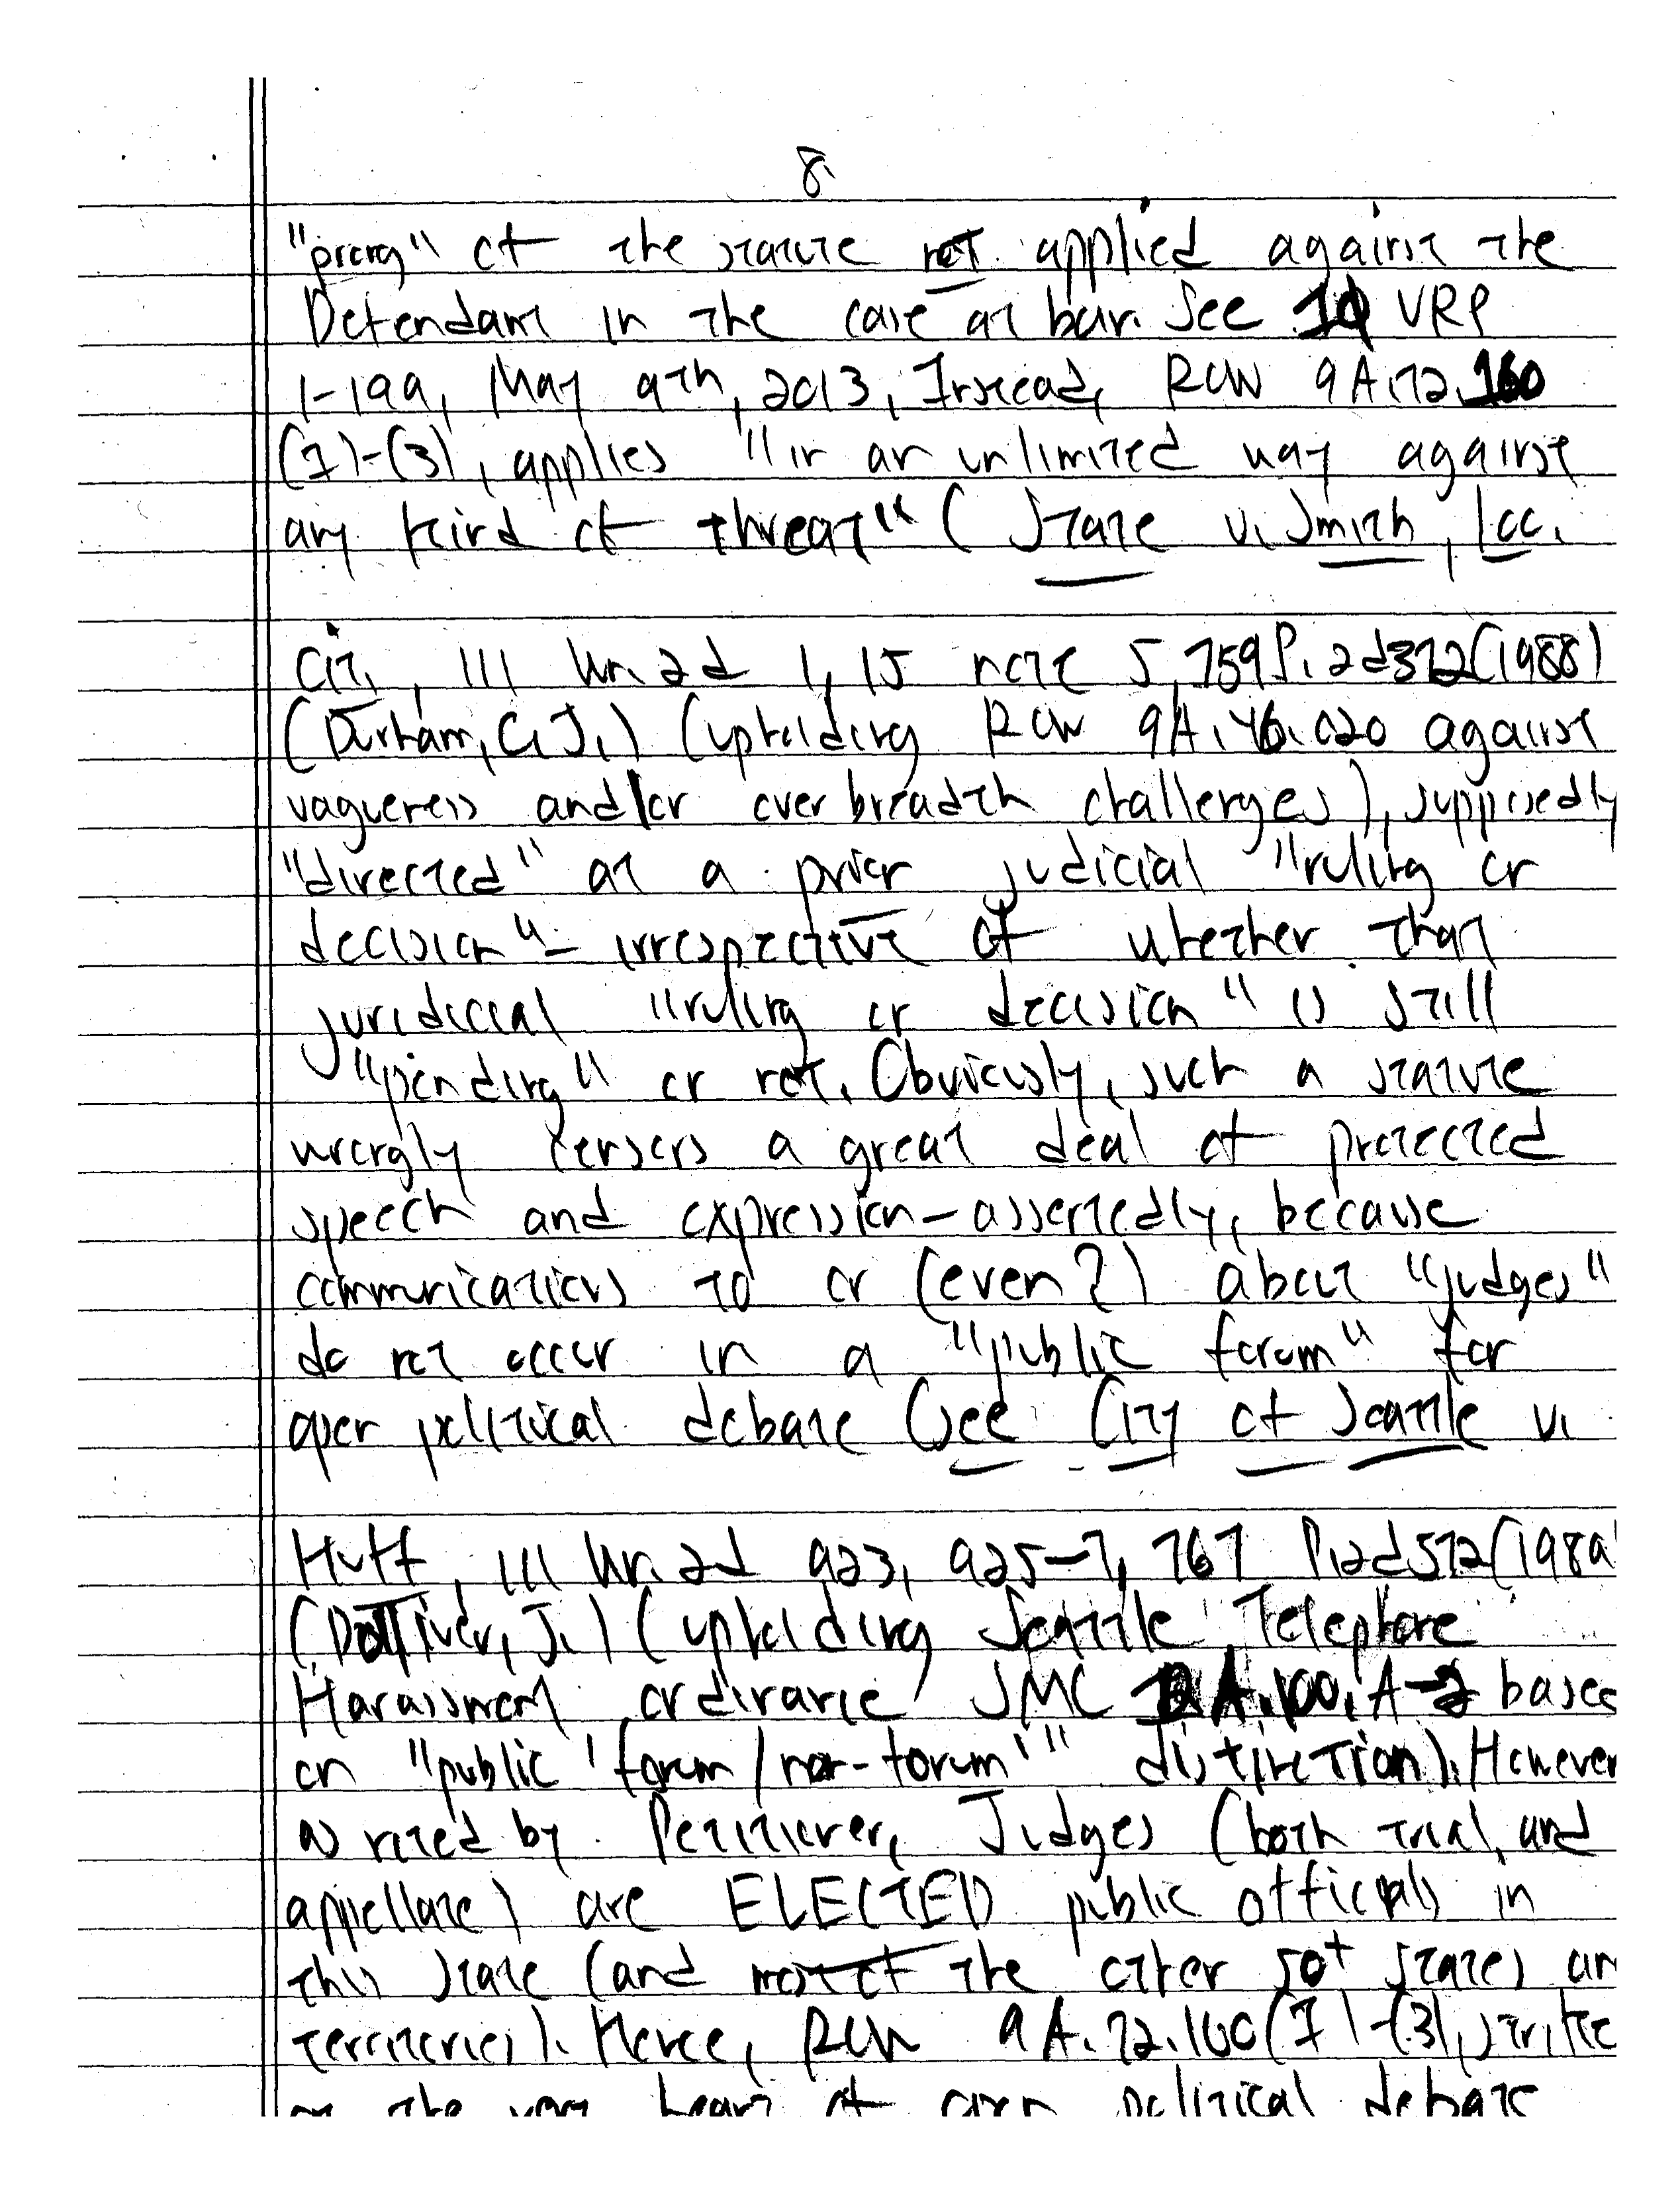 8.
"prong" of the statute not applied against the
Defendant in the case at bar. See 10 VRP
1-199, May 9th, 2013, Instead, RCW 9A.72.160
(1)-(3), applies "in an unlimited way against
any kind of threat" (State v. Smith, loc.
cit., 111 Wn.2d 1, 15 note 5, 759 P.2d 372 (1988)
(Durham, C.J.) (upholding RCW 9A.46.020 against
vagueness and/or overbreadth challenges), supposedly
"directed" at a prior judicial "ruling or
decision" - irrespective of whether that
juridicial "ruling or decision" is still
"pending" or not. Obviously, such a statute
wrongly censors a great deal of protected
speech and expression - assertedly, because
communications to or (even?) about "judges"
do not occur in a "public forum" for
open political debate (see City of Seattle v.
Huff, 111 Wn.2d 923, 925-7, 767 P.2d 572 (1989
(Dolliver, J.) (upholding Seattle Telephone
Harassment ordinance SMC 12A.100.A-2 bases
on "public 'forum/non-forum'" distinction). However
as noted by Petitioner, Judges (both trial, and
appellate) are ELECTED public officials in
this State (and most of the other 50+ states an
territories). Hence, RCW 9A.72.160(1)-(3), strike
at the very heart of open political debate